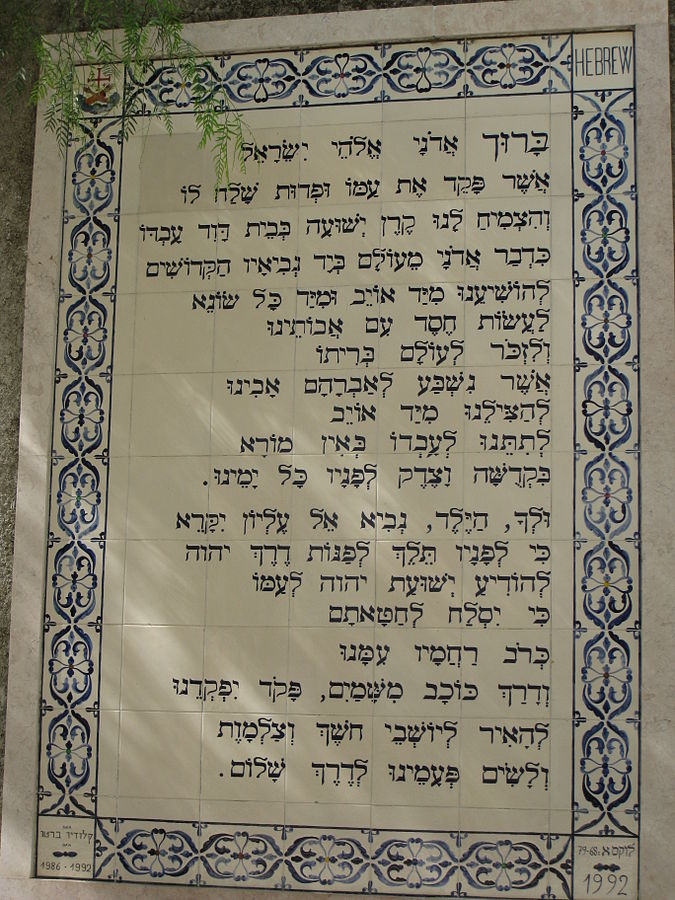 HEBREW
בָּרוּךְ אֲדֹנָי אֱלֹהֵי יִשְׂרָאֵל
אֲשֶׁר פָּקַד אֶת עַמּוֹ וּפְדוּת שָׁלַח לוֹ
וְהִצְמִיחַ לָנוּ קֶרֶן יְשׁוּעָה בְּבֵית דָּוִד עַבְדּוֹ
כִּדְבַר אֲדֹנָי מֵעוֹלָם בְּיַד נְבִיאָיו הַקְּדוֹשִׁים
לְהוֹשִׁיעֵנוּ מִיַּד אוֹיֵב וּמִיַּד כָּל שׂוֹנֵא
לַעֲשׂוֹת חֶסֶד עִם אֲבוֹתֵינוּ
וְלִזְכֹּר לְעוֹלָם בְּרִיתוֹ
אֲשֶׁר נִשְׁבַּע לְאַבְרָהָם אָבִינוּ
לְהַצִּילֵנוּ מִיַּד אוֹיֵב
לְתִתֵּנוּ לְעָבְדוֹ בְּאֵין מוֹרָא
בִּקְדֻשָּׁה וָצֶדֶק לְפָנָיו כָּל יָמֵינוּ.
וּלְךָ, הַיֶּלֶד, נְבִיא אֵל עֶלְיוֹן יִקָּרֵא
כִּי לְפָנָיו תֵּלֵךְ לְפַנּוֹת דֶּרֶךְ יהוה
לְהוֹדִיעַ יְשׁוּעַת יהוה לְעַמּוֹ
כִּי יִסְלַח לְחַטָּאתָם
כְּרֹב רַחֲמָיו עִמָּנוּ
וְדָרַךְ כּוֹכָב מִשָּׁמַיִם, פָּקֹד יִפְקְדֵנוּ
לְהָאִיר לְיוֹשְׁבֵי חֹשֶׁךְ וְצַלְמָוֶת
וְלָשִׂים פְּעָמֵינוּ לְדֶרֶךְ שָׁלוֹם.
קלודיו ברטו
1986 · 1992
לוקס א׃68-79
1992